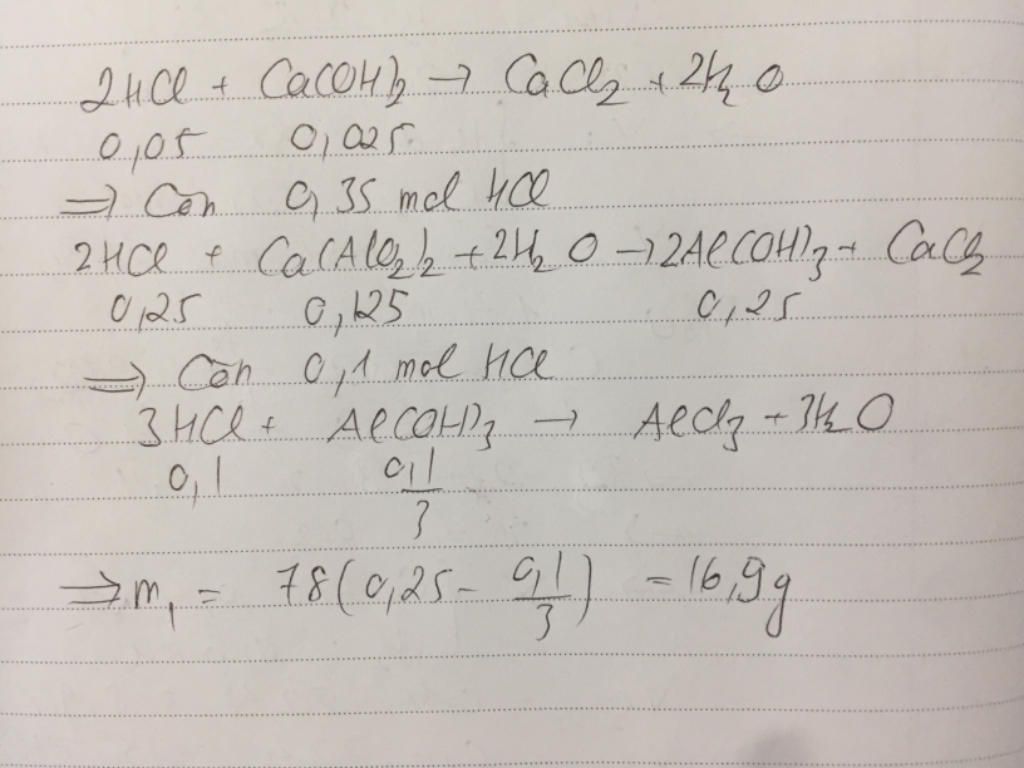 2HCl + Ca(OH)2 → CaCl2 + 2H2O
0,05 0,025
⇒ Còn 0,35 mol HCl
2HCl + Ca(AlO2)2 + 2H2O → 2Al(OH)3 + CaCl2
0,25 0,125 0,25
⇒ Còn 0,1 mol HCl
3HCl + Al(OH)3 → AlCl3 + 3H2O
0,1 0,1/3
⇒ m1 = 78(0,25 - 0,1/3) = 16,9g